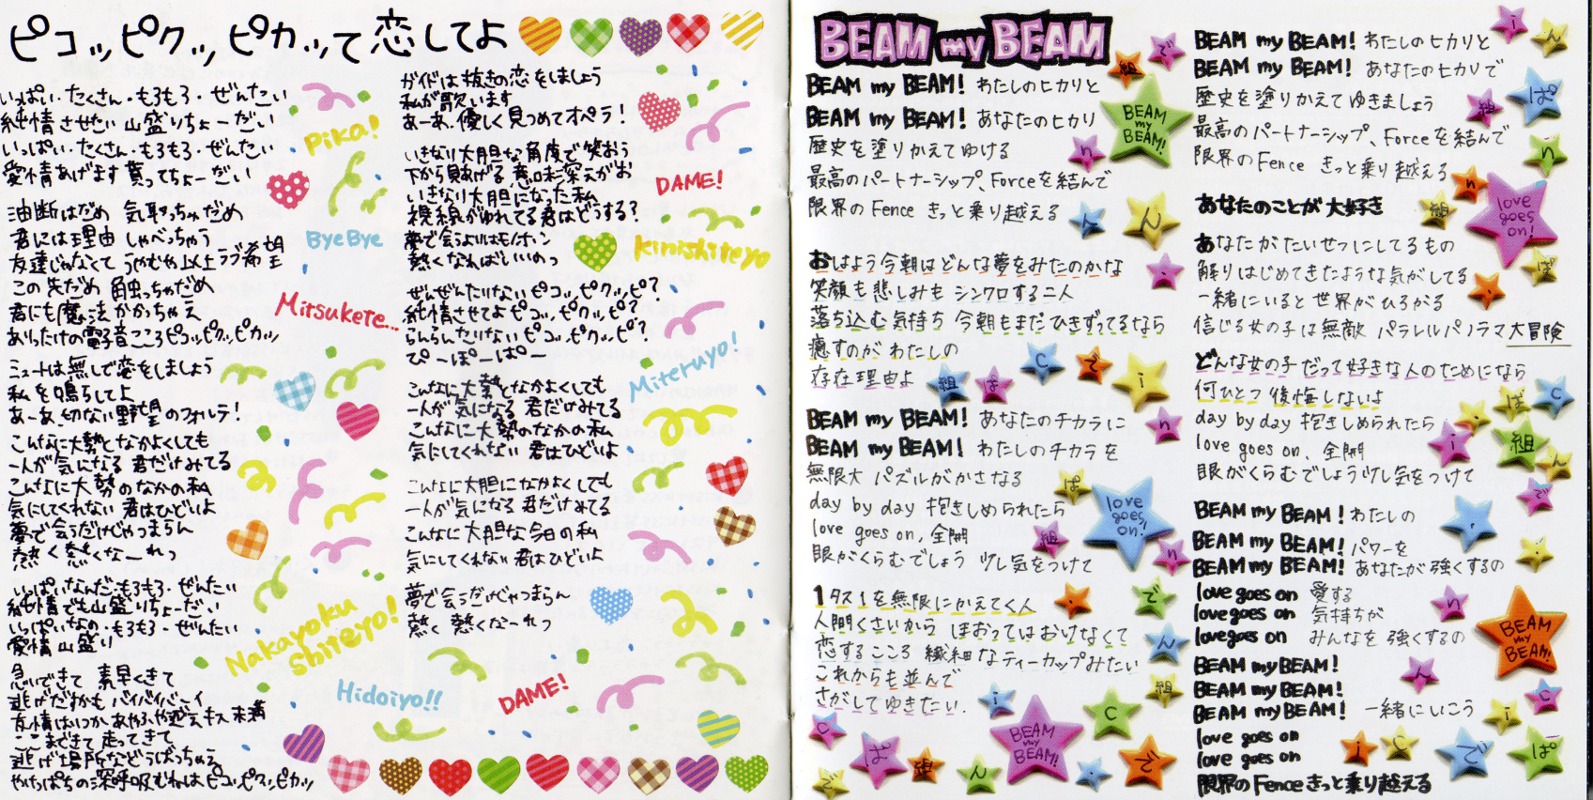 ピコッピクッピカッて恋してよ
いっぱい・たくさん・もろもろ・ぜんたい
純情させたい 山盛りちょーだい
いっぱい・たくさん・もろもろ・ぜんたい
愛情あげます 貰ってちょーだい
油断はだめ 気取っちゃだめ
君には理由 しゃべっちゃう
友達じゃなくて うやむや以上 ラブ希望
この先だめ 触っちゃだめ
君にも魔法 かかっちゃえ
ありったけの電子音こころピコッピクッピカッ
ミュートは無しで恋をしましょう
私を鳴らしてよ
あーあ、切ない野望のフォルテ!
こんなに大勢となかよくしても
一人が気になる 君だけみてる
こんなに大勢のなかの私
気にしてくれない 君はひどいよ
夢で会うだけじゃつまらん
熱く 熱くなーれっ
いっぱい・なんだ・もろもろ・ぜんたい
純情でも山盛りちょーだい
いっぱい・なの・もろもろ・ぜんたい
愛情 山盛り
急いできて 素早くきて
逃げだすかも バイバイバーイ
友情はいつか あやふや
ここまできて 走ってきて
逃げ場所などうばっちゃえ
やけっぱちの深呼吸むねはピコッピクッピカッ
ガイドは抜きの恋をしましょう
私が歌います
あーあ、優しく見つめてオペラ!
いきなり大胆な角度で笑おう
下から見あげる 意味深えがお
いきなり大胆になった私
視線がゆれてる君はどうする?
夢で会うよりは
熱くなればいいのっ
ぜんぜんたりない ピコッピクッピ?
純情させてよ ピコッピクッピ?
らんらんたりない ピコッピクッピ?
ぴーぽーぱー
こんなに大勢となかよくしても
一人が気になる 君だけみてる
こんなに大勢のなかの私
気にしてくれない 君はひどいよ
こんなに大胆になかよくしても
一人が気になる 君だけみてる
こんなに大胆な今日の私
気にしてくれない 君はひどいよ
夢で会うだけじゃつまらん
熱く 熱くなーれっ
Pika!
ByeBye
Mitsukete...
Nakayoku
shiteyo!
Hidoiyo!!
DAME!
DAME!
kinishiteyo
Miteruyo!
BEAM my BEAM
BEAM my BEAM! わたしのヒカリと
BEAM my BEAM! あなたのヒカリ
歴史を塗りかえてゆける
最高のパートナーシップ、Forceを結んで
限界のFence きっと乗り越える
おはよう今朝はどんな夢をみたのかな
笑顔も悲しみも シンクロする二人
落ち込む気持ち 今朝もまだひきずってるなら
癒すのが わたしの
存在理由よ
BEAM my BEAM! あなたのチカラに
BEAM my BEAM! わたしのチカラを
無限大 パズルがかさなる
day by day 抱きしめられたら
love goes on, 全開
眼がくらむでしょう 少し気をつけて
1タス1を無限にかえてく人
人間くさいから ほおってはおけなくて
恋するこころ 繊細なティーカップみたい
これからも並んで
さがしてゆきたい.
BEAM my BEAM! わたしのヒカリと
BEAM my BEAM! あなたのヒカリで
歴史を塗りかえてゆきましょう
最高のパートナーシップ、Forceを結んで
限界のFence きっと乗り越える
あなたのことが大好き
あなたがたいせつにしてるもの
解りはじめてきたような気がしてる
一緒にいると世界がひろがる
信じる女の子は無敵 パラレルパノラマ大冒険
どんな女の子だって好きな人のためになら
何ひとつ 後悔しないよ
day by day 抱きしめられたら
love goes on, 全開
眼がくらむでしょう少し気をつけて
BEAM my BEAM! わたしの
BEAM my BEAM! パワーを
BEAM my BEAM! あなたが強くするの
love goes on 愛する
love goes on 気持ちが
love goes on みんなを強くするの
BEAM my BEAM!
BEAM my BEAM!
BEAM my BEAM! 一緒にいこう
love goes on
love goes on
限界のFenceきっと乗り越える
BEAM
my
BEAM!
love
goes
on!
love
goes
on!
BEAM
my
BEAM!
BEAM
my
BEAM!